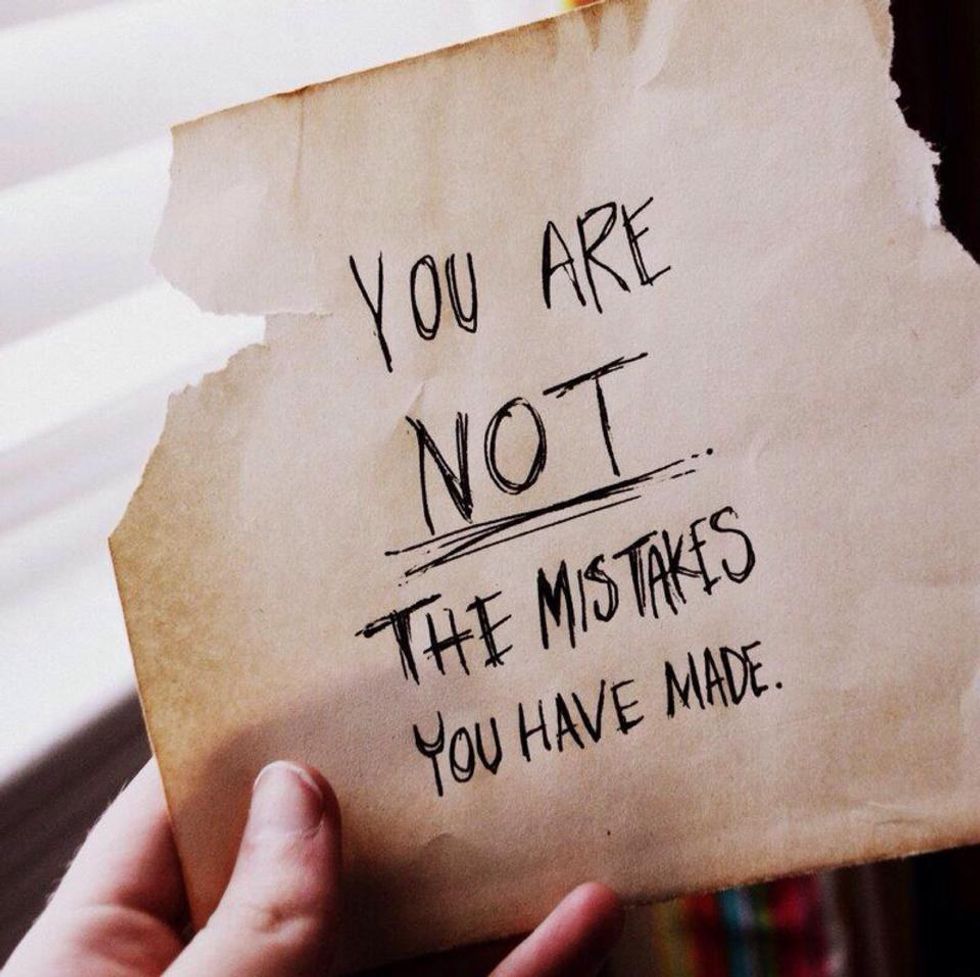 YOU ARE
NOT
THE MISTAKES
YOU HAVE MADE.